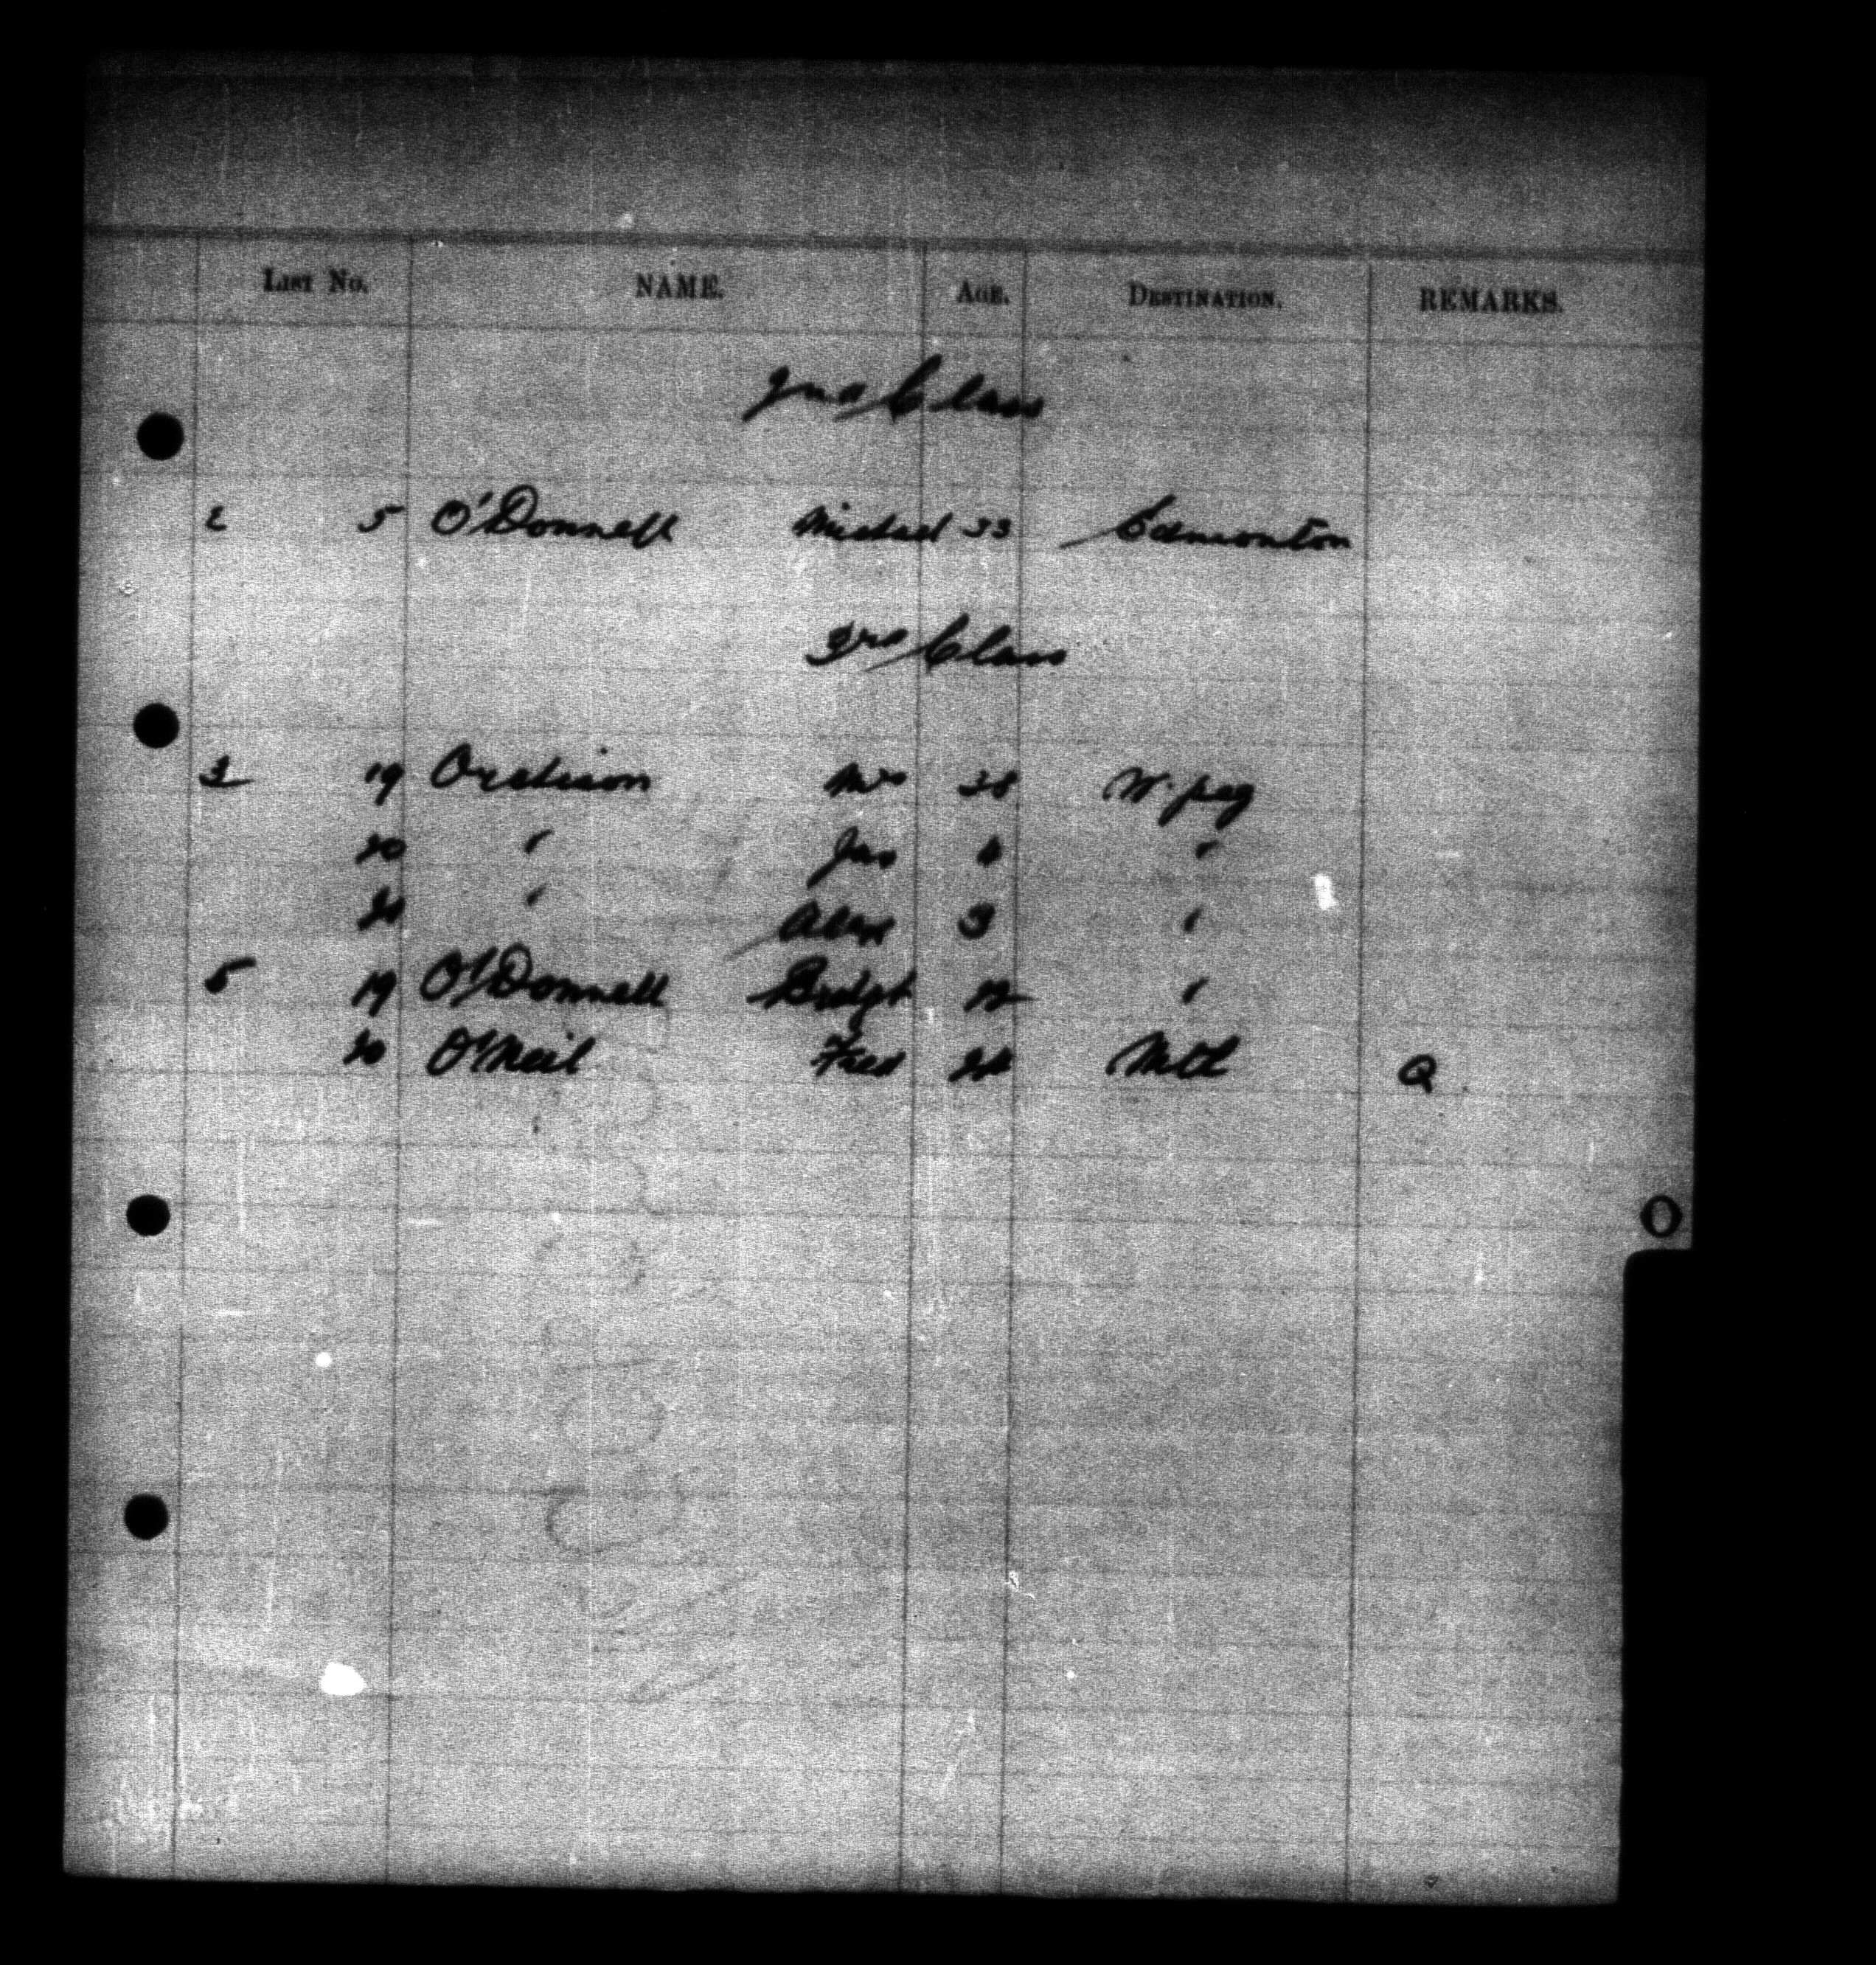 LIST NO. NAME. AGE. DESTINATION. REMARKS.
2nd Class
2 5 O'Donnell Michael 33 Edmonton
3rd Class
3 19 Mrs 38 W.peg
20 " Jas "
21 " Alex 3 "
5 19 O'Donnell Bridgt "
20 O'Neil Fred 24 Mtl Q
O